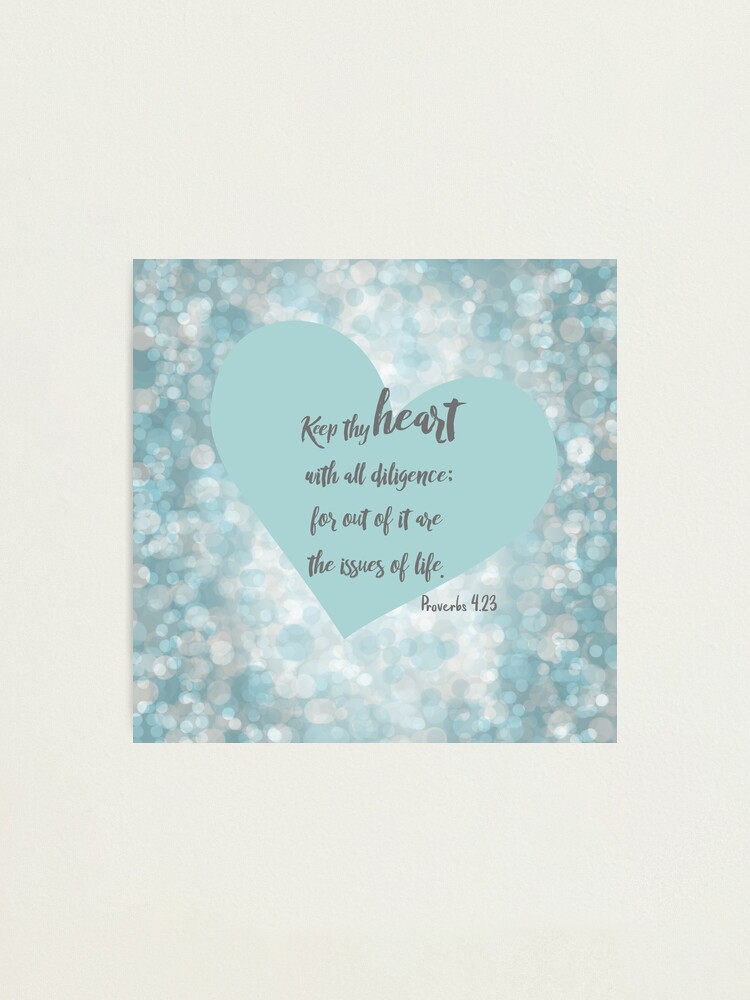 Keep thy heart
with all diligence;
for out of it are
the issues of life.
Proverbs 4.23